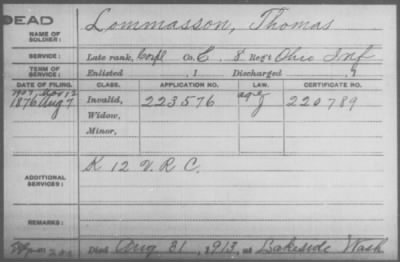 DEAD
NAME OF SOLDIER: Lommasson, Thomas
SERVICE: Late rank, Corpl Co. C, 8 Reg't Ohio Inf
TERM OF SERVICE: Enlisted , 1 Discharged , 9
DATE OF FILING. CLASS. APPLICATION NO. LAW. CERTIFICATE NO.
1907, Nov 12 age
1876 Aug 7 Invalid, 223576 J 220789
Widow,
Minor,
ADDITIONAL SERVICES: K 12 V. R. C.
REMARKS:
Died Aug 31, 1913, at Lakeside Wash